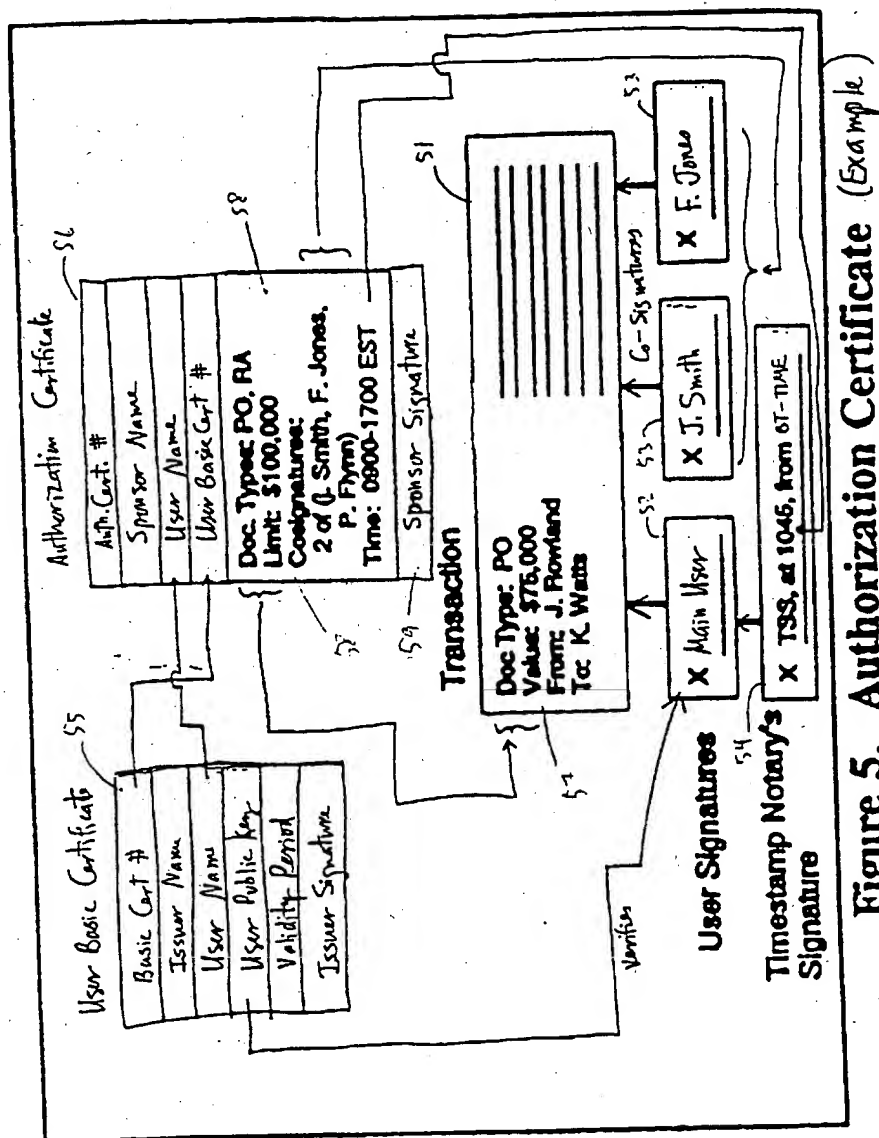 User Basic Certificate
55
Basic Cert #
Issuer Name
User Name
User Public Key
Validity Period
Issuer Signature
Authorization Certificate
56
Auth. Cert. #
Sponsor Name
User Name
User Basic Cert #
Doc. Types: PO, RA
Limit: $100,000
Cosignatures:
2 of (J. Smith, F. Jones,
P. Flynn)
Time: 0900-1700 EST
58
59
Sponsor Signature
Transaction
51
Doc Type: PO
Value: $75,000
From: J. Rowland
To: K. Watts
57
Verifies
52
53
Co-Signatures
53
User Signatures
X Main User
X J. Smith
X F. Jones
54
Timestamp Notary's
Signature
X TSS, at 1045, from BT-TIME
Figure 5. Authorization Certificate (Example)